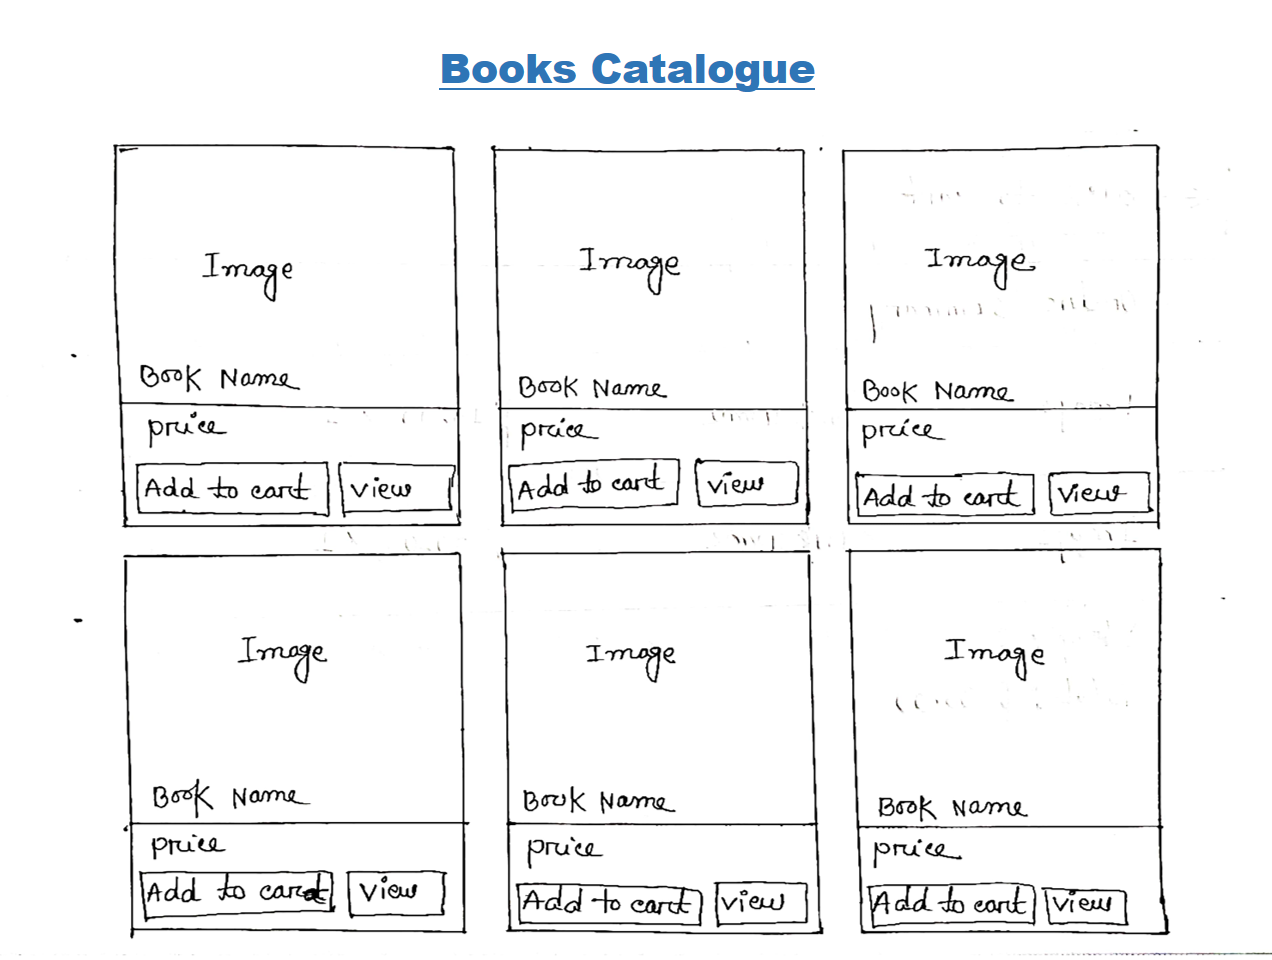 Books Catalogue
Image
Book Name
price
Add to cart
view
Image
Book Name
price
Add to cart
view
Image
Book Name
price
Add to cart
view
Image
Book Name
price
Add to cart
view
Image
Book Name
price
Add to cart
view
Image
Book Name
price
Add to cart
view